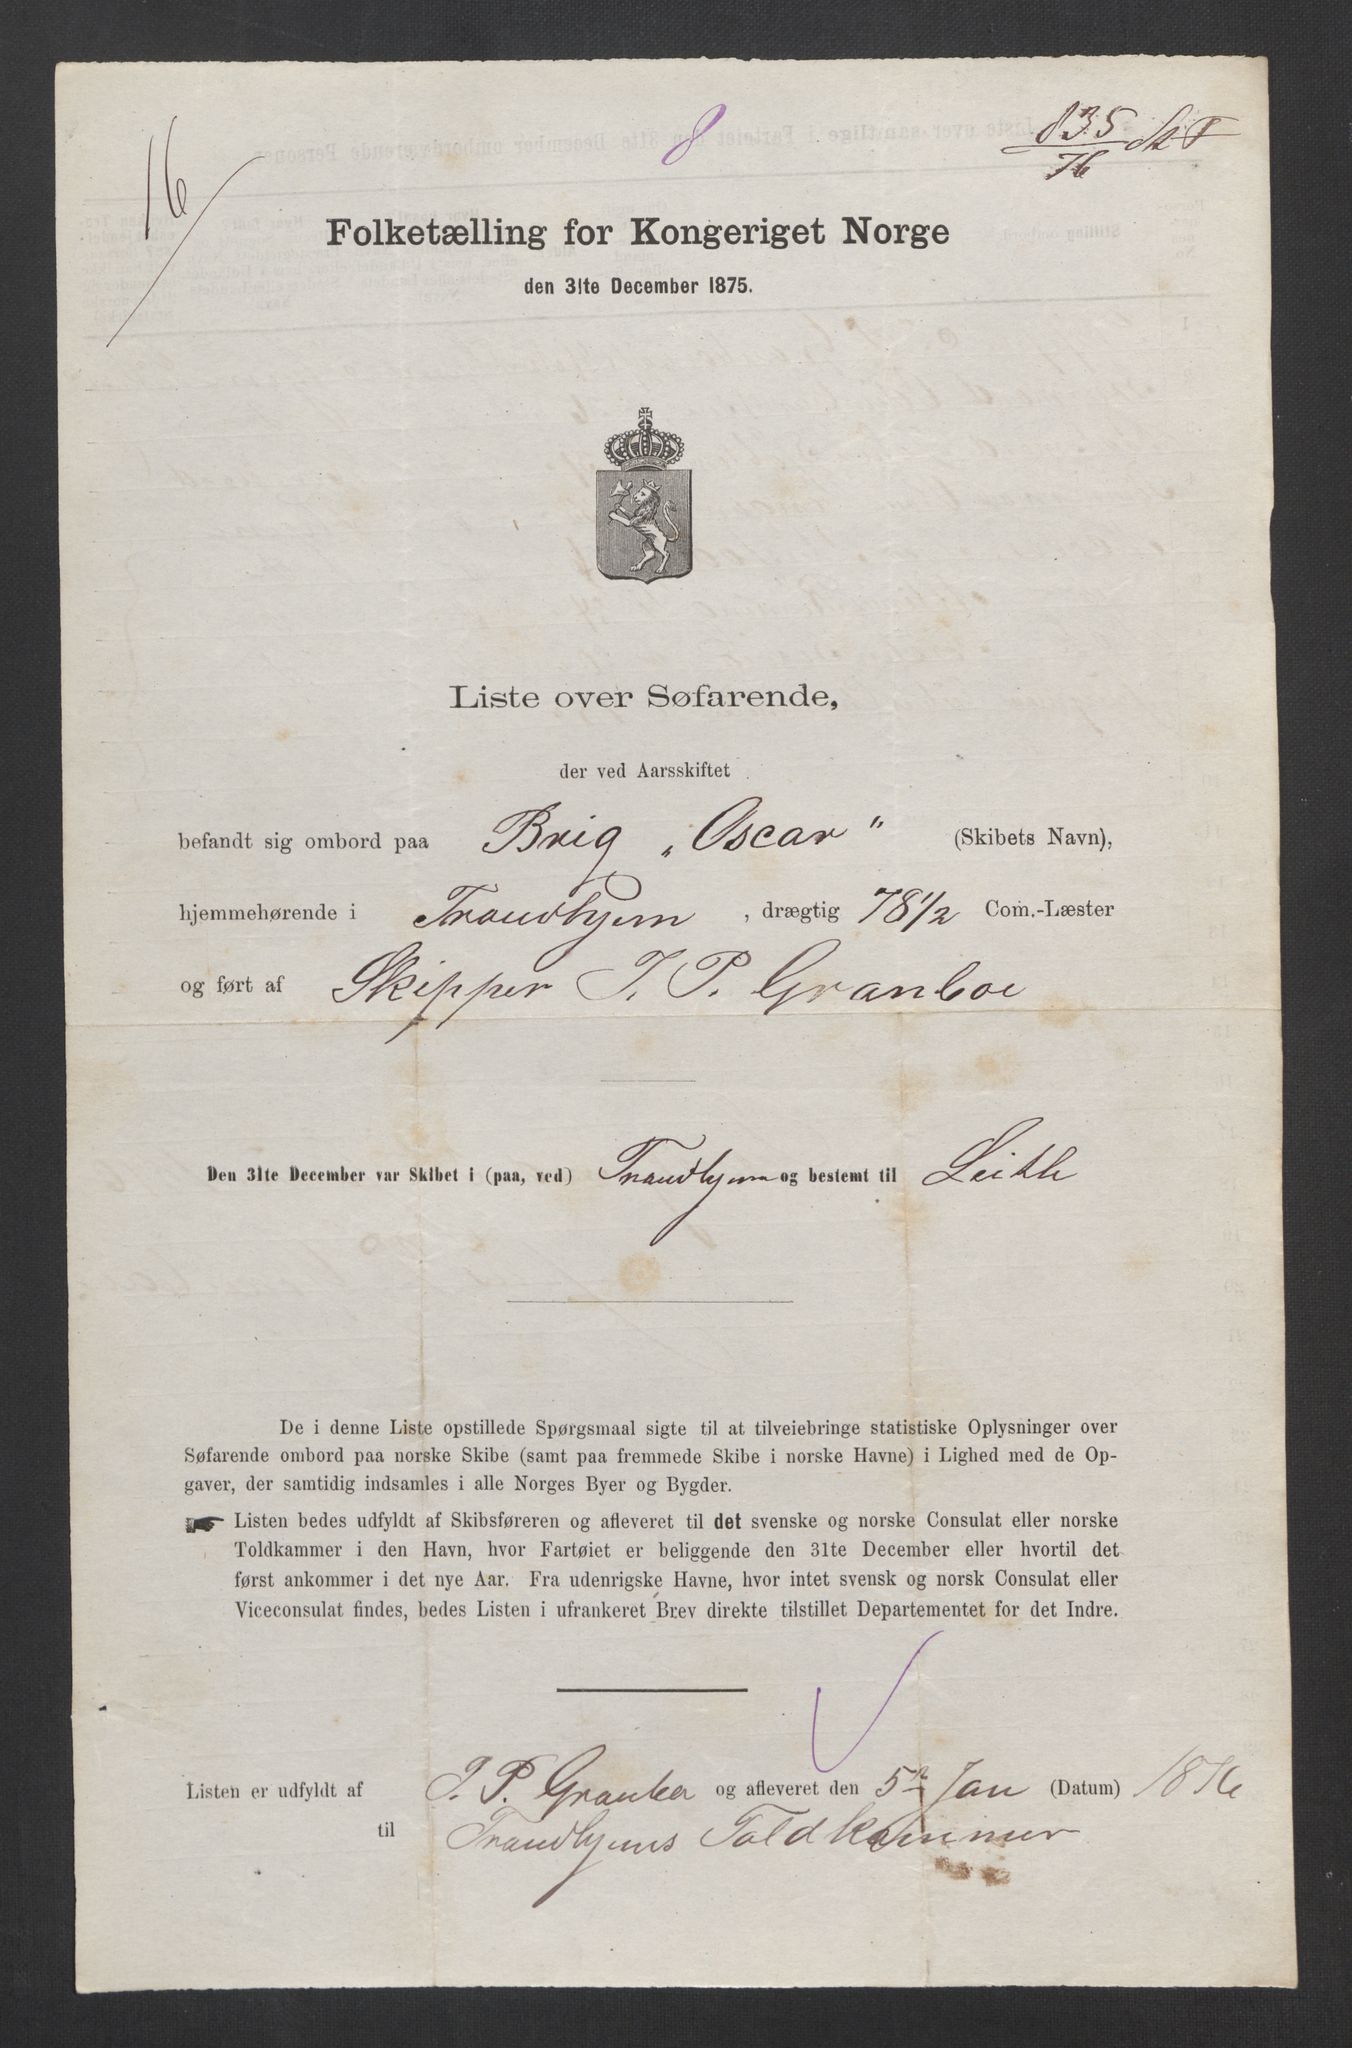 16
8
835
76
Folketælling for Kongeriget Norge
den 31te December 1875.
Liste over Søfarende,
der ved Aarsskiftet
befandt sig ombord paa Brig „Oscar" (Skibets Navn),
hjemmehørende i Trondhjem, drægtig 78 1/2 Com.-Læster
og ført af Skipper J. P. Granboe
Den 31te December var Skibet i (paa, ved) Trondhjem og bestemt til Leith
De i denne Liste opstillede Spørgsmaal sigte til at tilveiebringe statistiske Oplysninger over
Søfarende ombord paa norske Skibe (samt paa fremmede Skibe i norske Havne) i Lighed med de Op-
gaver, der samtidig indsamles i alle Norges Byer og Bygder.
Listen bedes udfyldt af Skibsføreren og afleveret til det svenske og norske Consulat eller norske
Toldkammer i den Havn, hvor Fartøiet er beliggende den 31te December eller hvortil det
først ankommer i det nye Aar. Fra udenrigske Havne, hvor intet svensk og norsk Consulat eller
Viceconsulat findes, bedes Listen i ufrankeret Brev direkte tilstillet Departementet for det Indre.
Listen er udfyldt af J. P. Granboe og afleveret den 5te Jan (Datum) 1876
til Trondhjems Toldkammer